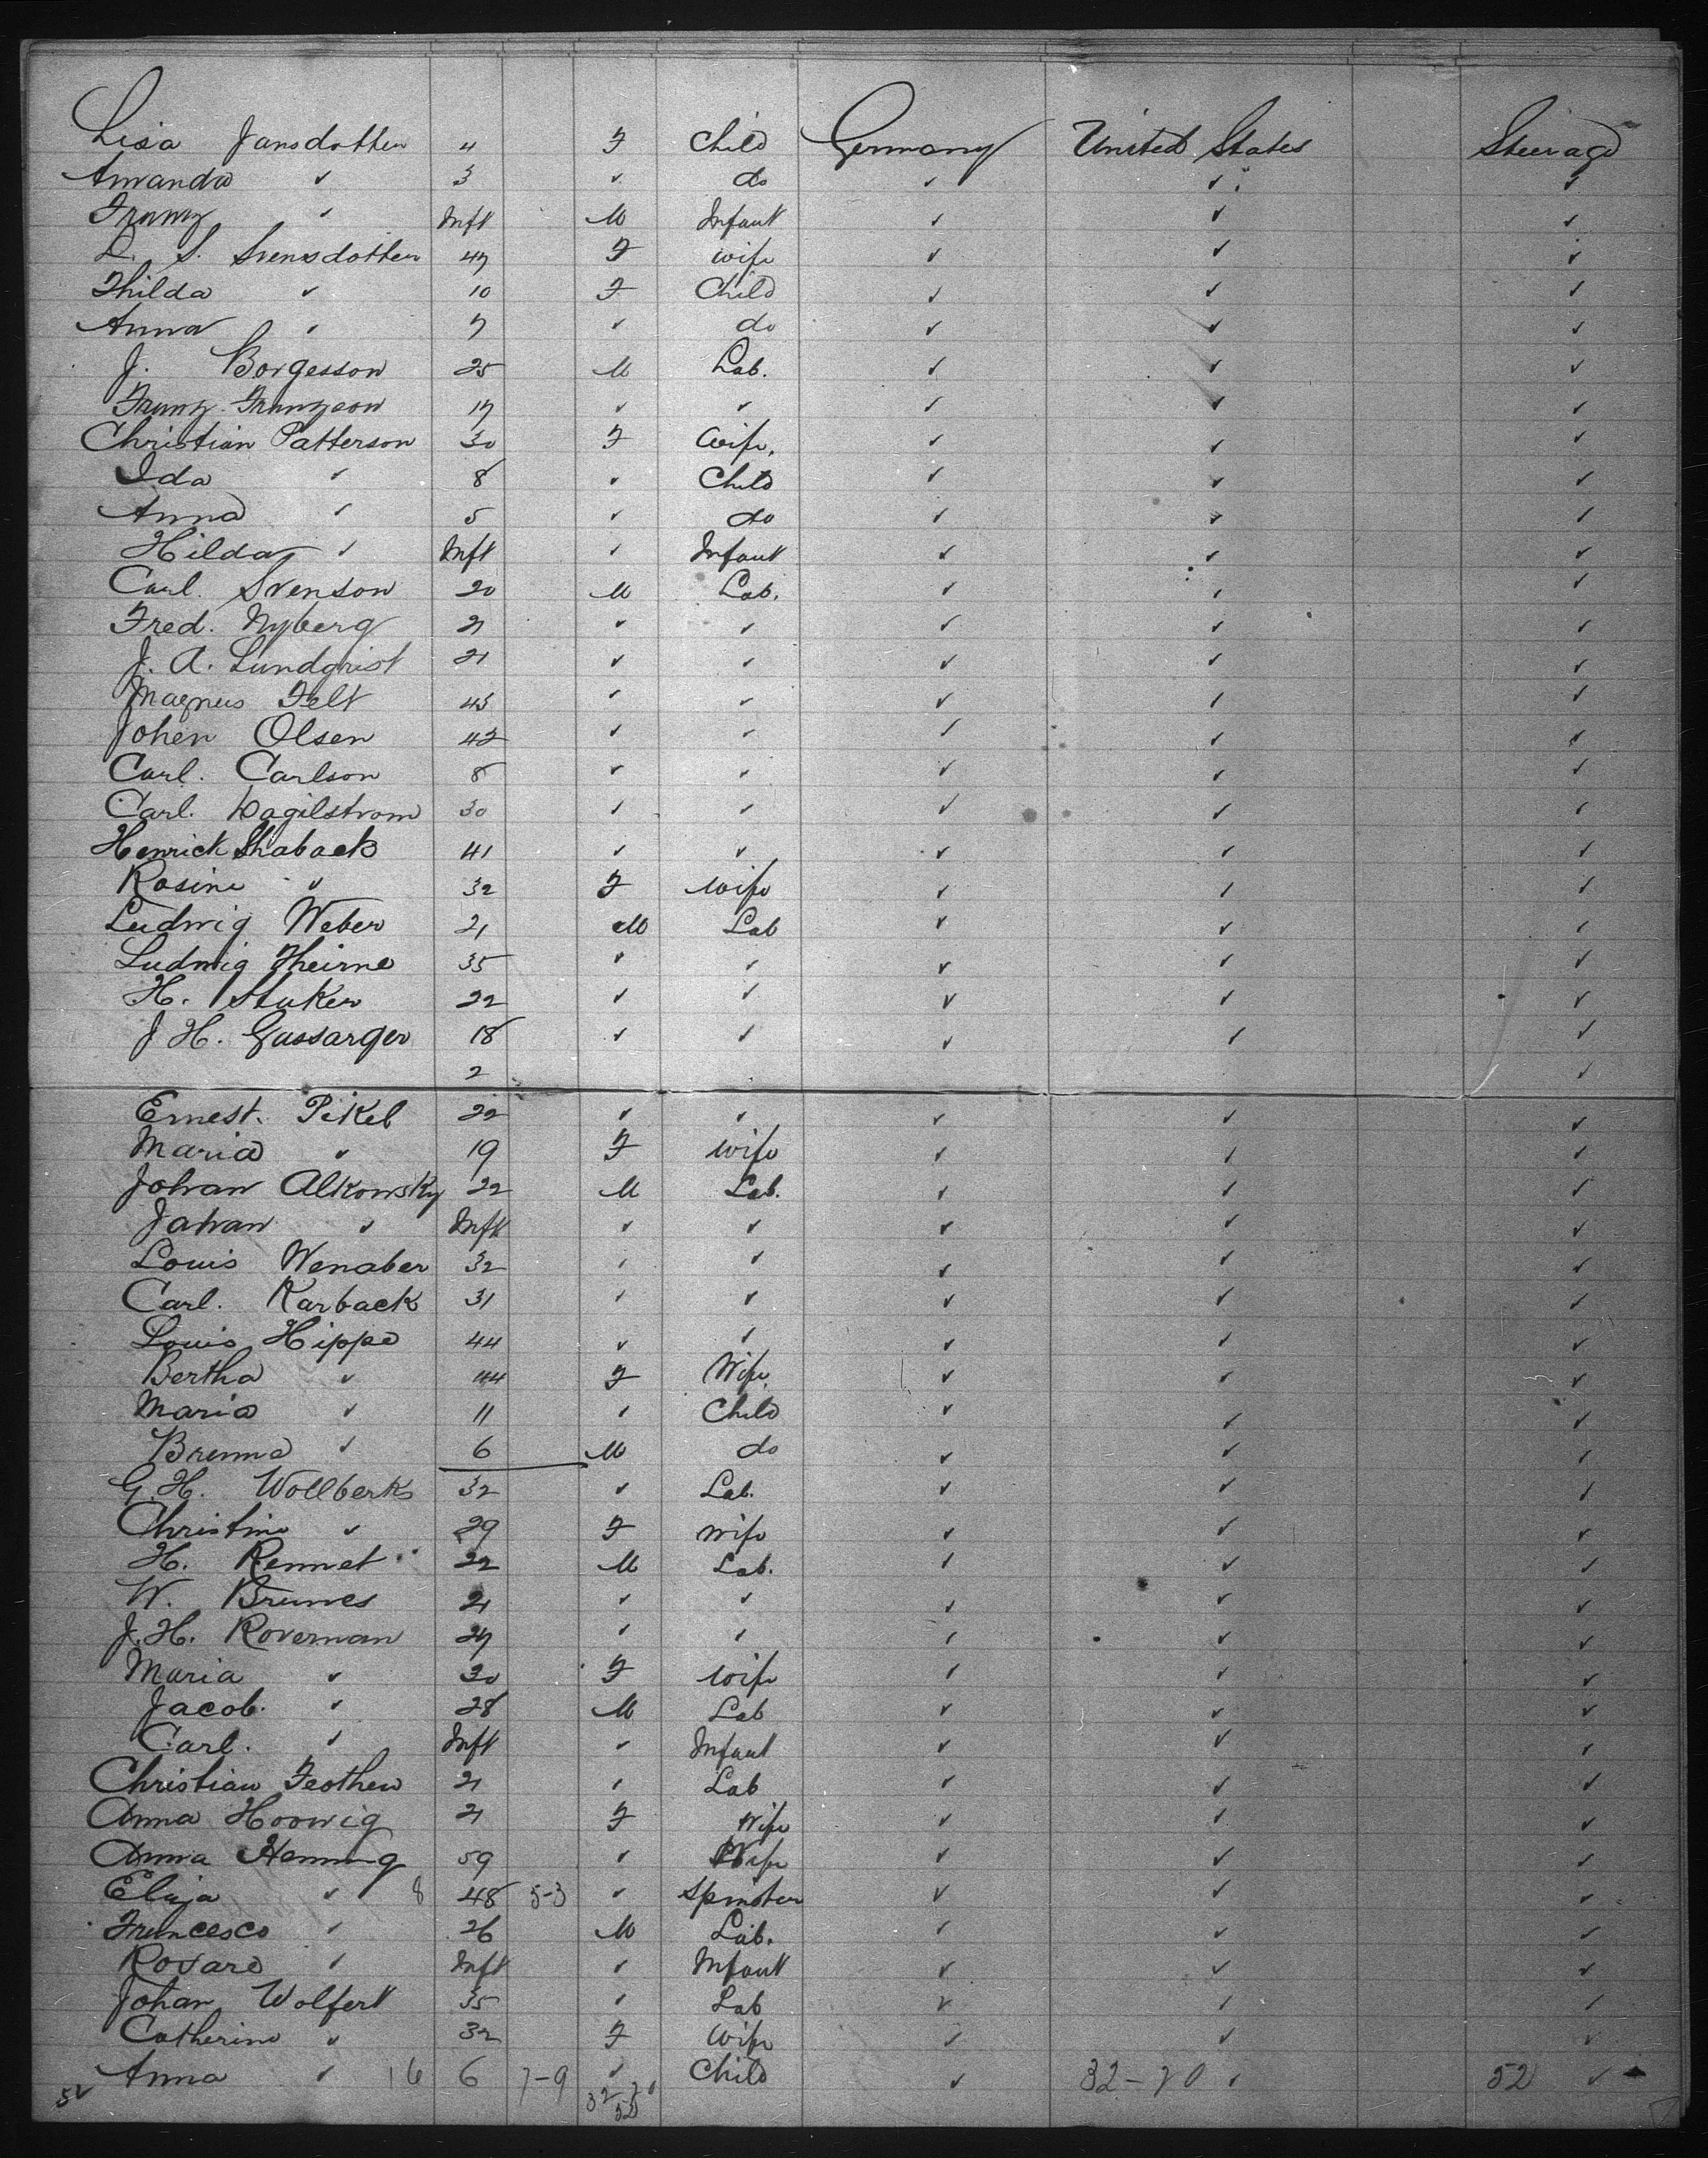 Lisa Jansdotter 4 F Child Germany United States Steerage
Amanda ✓ 3 ✓ do ✓ ✓ ✓
Franz ✓ Inft M Infant ✓ ✓ ✓
S. Svensdotter 47 F wife ✓ ✓ ✓
Thilda ✓ 10 F Child ✓ ✓ ✓
Anna ✓ 7 ✓ do ✓ ✓ ✓
J. Borgesson 25 M Lab. ✓ ✓ ✓
Franz Franzson 17 ✓ ✓ ✓ ✓ ✓
Christian Patterson 30 F Wife. ✓ ✓ ✓
Ida ✓ 8 ✓ Child ✓ ✓ ✓
Anna ✓ 5 ✓ do ✓ ✓ ✓
Hilda ✓ Inft ✓ Infant ✓ ✓ ✓
Carl. Svenson 20 M Lab. ✓ ✓ ✓
Fred. Nyberg 21 ✓ ✓ ✓ ✓ ✓
J. A. Lundqrist 21 ✓ ✓ ✓ ✓ ✓
Magnus Felt 43 ✓ ✓ ✓ ✓ ✓
Johen Olsen 42 ✓ ✓ ✓ ✓ ✓
Carl. Carlson 8 ✓ ✓ ✓ ✓ ✓
Carl. Hagilstrom 30 ✓ ✓ ✓ ✓ ✓
Henrick Shaback 41 ✓ ✓ ✓ ✓ ✓
Rosine ✓ 32 F wife ✓ ✓ ✓
Ludwig Weber 21 M Lab ✓ ✓ ✓
Ludwig Theirne 35 ✓ ✓ ✓ ✓ ✓
H. Stuker 22 ✓ ✓ ✓ ✓ ✓
J H. Gassarger 18 ✓ ✓ ✓ ✓ ✓
2 ✓
Ernest. Pikel 22 ✓ ✓ ✓ ✓ ✓
Maria ✓ 19 F wife ✓ ✓ ✓
Johan Alkowsky 22 M Lab. ✓ ✓ ✓
Johan ✓ Inft ✓ ✓ ✓ ✓ ✓
Louis Wenaber 32 ✓ ✓ ✓ ✓ ✓
Carl. Karback 31 ✓ ✓ ✓ ✓ ✓
Louis Hippe 44 ✓ ✓ ✓ ✓ ✓
Bertha ✓ 44 F Wife. ✓ ✓ ✓
Maria ✓ 11 ✓ Child ✓ ✓ ✓
Brenna ✓ 6 M do ✓ ✓ ✓
G. H. Wollberks 32 ✓ Lab. ✓ ✓ ✓
Christine ✓ 29 F wife ✓ ✓ ✓
H. Rennet 22 M Lab. ✓ ✓ ✓
W. Brunes 21 ✓ ✓ ✓ ✓ ✓
J. H. Roverman 27 ✓ ✓ ✓ ✓ ✓
Maria ✓ 20 F wife ✓ ✓ ✓
Jacob. ✓ 28 M Lab ✓ ✓ ✓
Carl. ✓ Inft ✓ Infant ✓ ✓ ✓
Christian Feothen 21 ✓ Lab ✓ ✓ ✓
Anna Hoowig 21 F Wife ✓ ✓ ✓
Anna Henning 59 ✓ Wife ✓ ✓ ✓
Eliza ✓ 8 48 5-3 ✓ Spinster ✓ ✓ ✓
Francesco ✓ 26 M Lab. ✓ ✓ ✓
Rosare ✓ Inft ✓ Infant ✓ ✓ ✓
Johan Wolfert 35 ✓ Lab ✓ ✓ ✓
Catherine ✓ 32 F Wife ✓ ✓ ✓
Anna ✓ 16 6 7-9 ✓ Child ✓ 32-20 ✓ 52 ✓
52 32 20
52